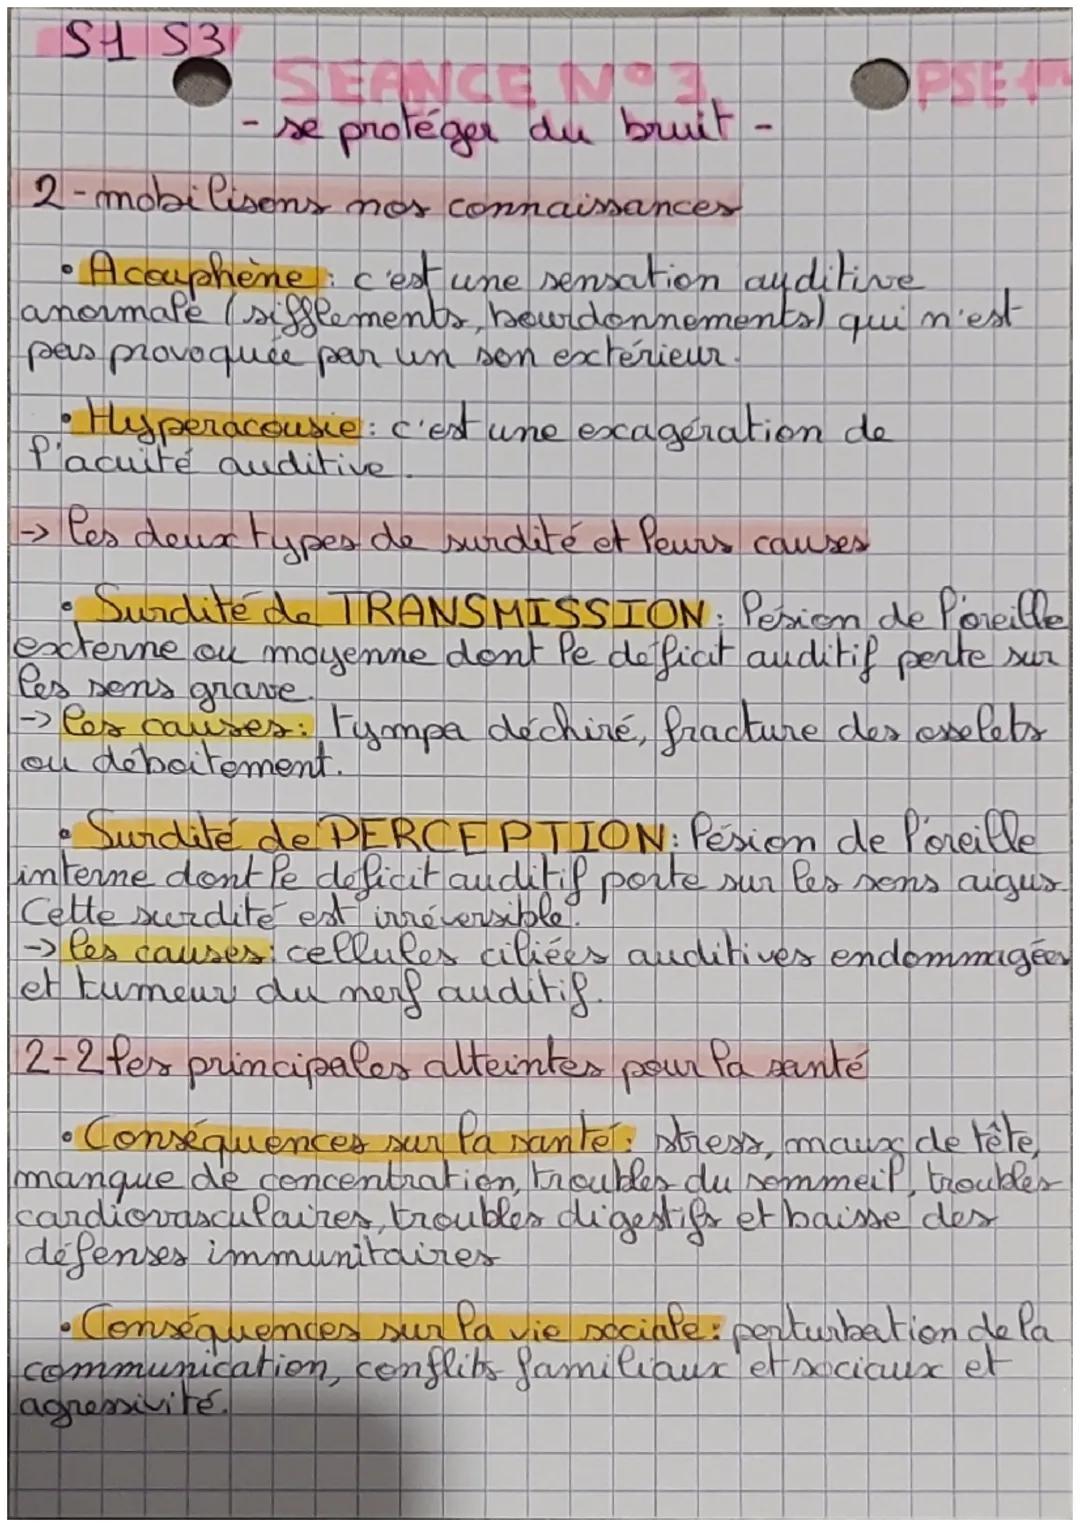 S1 S3
SEANCE N°3
PSE 1
- se protéger du bruit -
2 - mobilisons nos connaissances
• Acouphène : c'est une sensation auditive
anormale (sifflements, bourdonnements) qui n'est
pas provoquée par un son extérieur.
• Hyperacousie : c'est une exagération de
l'acuité auditive.
-> les deux types de surdité et leurs causes
• Surdité de TRANSMISSION : lésion de l'oreille
externe ou moyenne dont le déficit auditif porte sur
les sons grave.
-> les causes : tympa déchiré, fracture des osselets
ou déboitement.
• Surdité de PERCEPTION : lésion de l'oreille
interne dont le deficit auditif porte sur les sons aigus.
Cette surdité est irréversible.
-> les causes : cellules ciliées auditives endommagées
et tumeur du nerf auditif.
2-2 les principales atteintes pour la santé
• Conséquences sur la santé : stress, maux de tête,
manque de concentration, troubles du sommeil, troubles
cardiovasculaires, troubles digestifs et baisse des
défenses immunitaires
• Conséquences sur la vie sociale : perturbation de la
communication, conflits familiaux et sociaux et
agressivité.